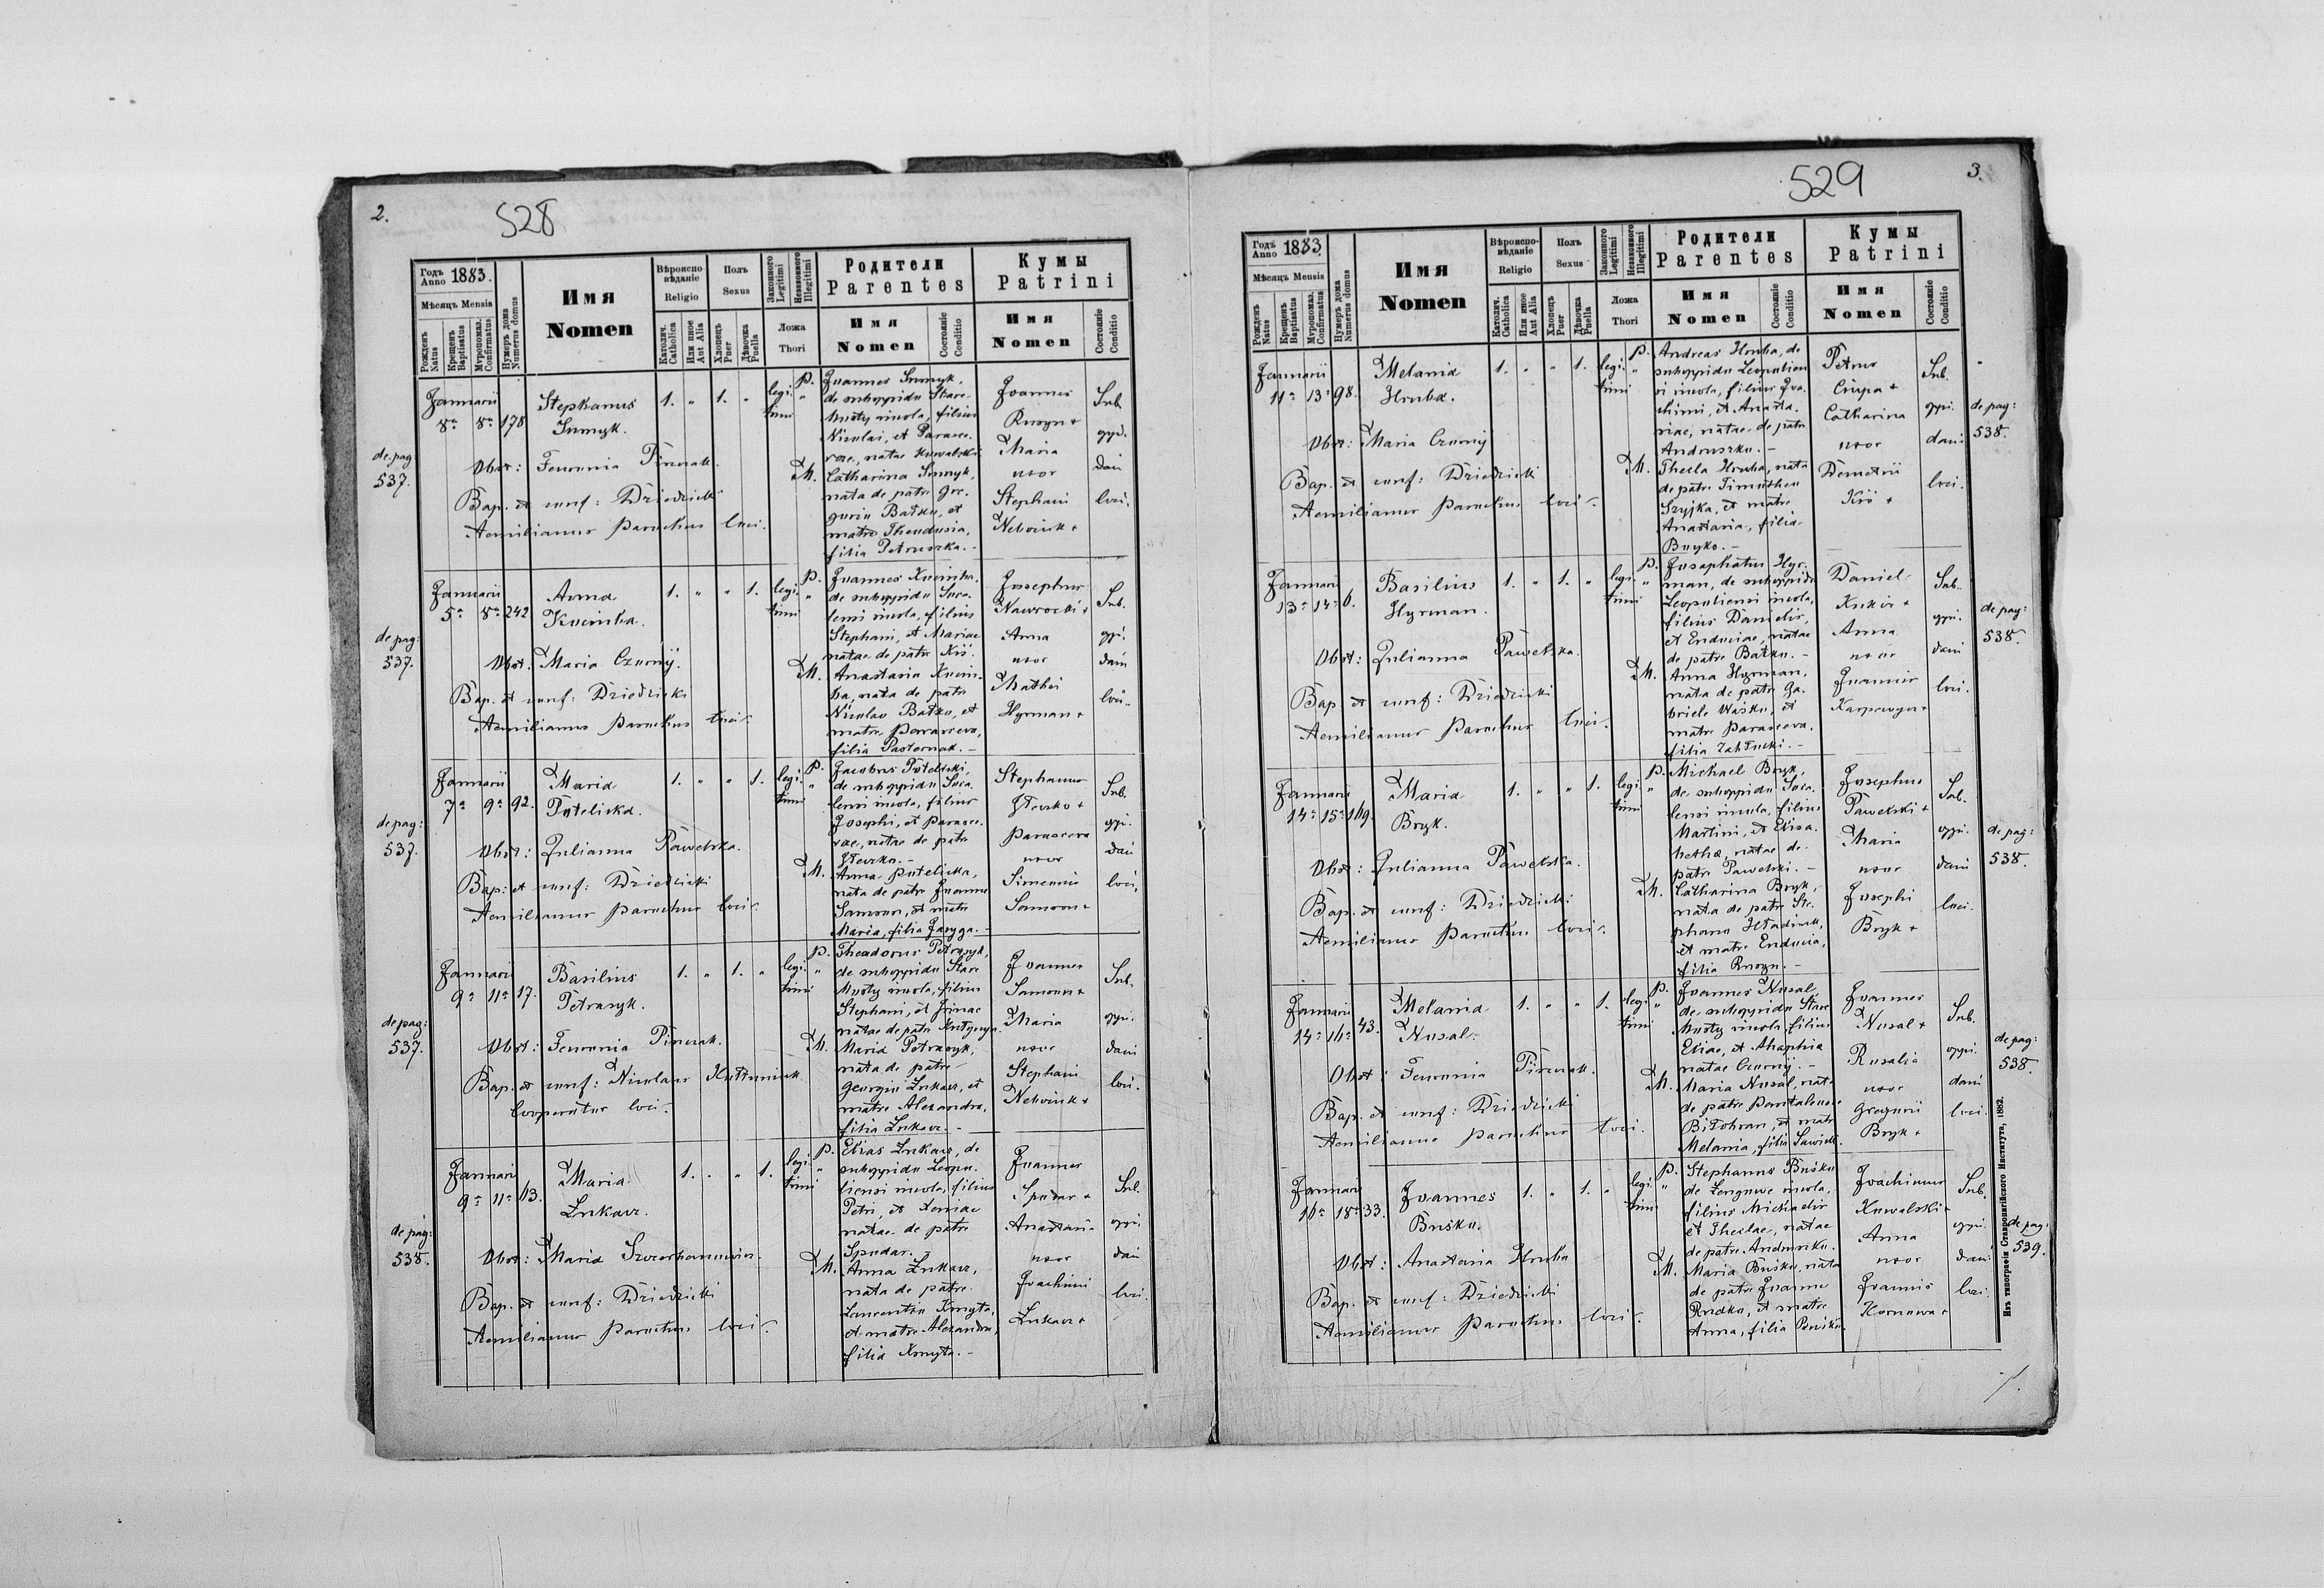 2.
528
Годъ Anno 1883.
Мѣсяцъ Mensis
Рожденъ Natus
Крещенъ Baptisatus
Мѵропомаз. Confirmatus
Нумеръ дома Numerus domus
Имя
Nomen
Вѣроиспо-
вѣдание
Religio
Католич. Catholica
Или иное Aut Alia
Полъ
Sexus
Хлопецъ Puer
Дѣвочка Puella
Законного Legitimi
Незаконного Illegitimi
Ложа
Thori
Родители
Parentes
Имя
Nomen
Состояніе Conditio
Кумы
Patrini
Имя
Nomen
Состояніе Conditio
de pag
537.
Januarii
8a 8a 178
Stephanus
Smnyk.
1. " 1. "
legi-
timi
Obst: Feuronia Pinczak.
Bap. et conf: Dziedzicki
Aemilianus Parochus loci.
P. Joannes Smnyk,
de suboppido Stare
Mosty incola, filius
Nicolai, et Parasce-
vae, natae Kowalski
M. Catharina Smnyk,
nata de patre Gre-
gorio Batku, et
matre Theodosia,
filia Petruszka.-
Joannes
Rusyn +
Maria
uxor
Stephani
Nebozuk +
Sub
oppi-
dani
loci.
de pag:
537.
Januarii
5a 8a 242
Anna
Kocimba.
1. " " 1.
legi-
timi
Obst: Maria Czornij.
Bap. et conf: Dziedzicki
Aemilianus Parochus loci.
P. Joannes Kocimba,
de suboppido Soca-
lensi incola, filius
Stephani, et Mariae
natae de patre Kis.
M. Anastasia Kocim-
ba, nata de patre
Nicolao Batku, et
matre Parasceva,
filia Pasternak.-
Josephus
Nawrocki +
Anna
uxor
Mathei
Hyrman +
Sub.
oppi-
dani
loci.
de pag:
537.
Januarii
7a 9a 92.
Maria
Potelicka.
1. " " 1.
legi-
timi
Obst: Julianna Pawelska.
Bap: et conf: Dziedzicki
Aemilianus Parochus loci.
P. Jacobus Potelicki,
de suboppido Soca-
lensi incola, filius
Josephi, et Parasce-
vae, natae de patre
M. Anna Potelicka,
nata de patre Joanne
Samson, et matre
Maria, filia Jaryga.-
Stephanus
Parasceva
uxor
Simeonis
Samson +
Sub.
oppi-
dani
loci.
de pag:
537.
Januarii
9a 11a 17.
Basilius
Petrasyk.
1. " 1. "
legi-
timi
Obst: Feuronia Pinczak.
Bap. et conf: Nicolaus Kuttuniuk
Cooperator loci.
P. Theodorus Petrasyk,
de suboppido Stare
Mosty incola, filius
Stephani, et Irinae
M. Maria Petrasyk,
nata de patre
Georgio Lukacz, et
matre Alexandra,
filia Lukacz.-
Joannes
Samson +
Maria
uxor
Stephani
Nebozuk +
Sub.
oppi-
dani
loci.
de pag:
538.
Januarii
9a 11a 63.
Maria
Lukacz.
1. " " 1.
legi-
timi
Obst: Maria
Bap. et conf: Dziedzicki
Aemilianus Parochus loci.
P. Elias Lukacz, de
suboppido Leopo-
liensi incola, filius
Petri, et Xeniae
natae de patre
Spodar.
M. Anna Lukacz,
nata de patre
Laurentio Kmyta,
et matre Alexandra,
filia Kmyta.-
Joannes
Spodar +
Anastasia
uxor
Joachimi
Lukacz +
Sub.
oppi-
dani
loci.
529
3.
Годъ Anno 1883.
Мѣсяцъ Mensis
Рожденъ Natus
Крещенъ Baptisatus
Мѵропомаз. Confirmatus
Нумеръ дома Numerus domus
Имя
Nomen
Вѣроиспо-
вѣдание
Religio
Католич. Catholica
Или иное Aut Alia
Полъ
Sexus
Хлопецъ Puer
Дѣвочка Puella
Законного Legitimi
Незаконного Illegitimi
Ложа
Thori
Родители
Parentes
Имя
Nomen
Состояніе Conditio
Кумы
Patrini
Имя
Nomen
Состояніе Conditio
Januarii
11a 13a 98.
Melania
Hruba.
1. " " 1.
legi-
timi
Obst: Maria Czornij
Bap. et conf: Dziedzicki
Aemilianus Parochus loci.
P. Andreas Hruba, de
suboppido Leopolien-
si incola, filius Joa-
chimi, et Anasta-
siae, natae de patre
Andruszko.-
M. Thecla Hruba, nata
de patre Timotheo
Szyjka, et matre
Anastasia, filia
Boyko.-
Petrus
Ciupa +
Catharina
uxor
Demetrii
Kis +
Sub.
oppi-
dani
loci.
de pag:
538.
Januarii
13a 14a 6.
Basilius
Hyrman.
1. " 1. "
legi-
timi
Obst: Julianna Pawelska.
Bap et conf: Dziedzicki
Aemilianus Parochus loci.
P. Josaphatus Hyr-
man, de suboppido
Leopoliensi incola,
filius Danielis,
et Eudociae, natae
de patre Batku.-
M. Anna Hyrman,
nata de patre Ga-
briele Wasku, et
matre Parasceva,
filia Zabłocki.-
Daniel
Kukis +
Anna
uxor
Joannis
Sub.
oppi-
dani
loci.
de pag:
538.
Januarii
14a 15a 169.
Maria
Bryk.
1. " " 1.
legi-
timi
Obst: Julianna Pawelska.
Bap. et conf: Dziedzicki
Aemilianus Parochus loci.
P. Michael Bryk,
de suboppido Soca-
lensi incola, filius
Martini, et Elisa-
betha, natae de
patre Pawelski.-
M. Catharina Bryk,
nata de patre Ste-
phano Hladiuk,
et matre Eudocia,
filia Rusyn.-
Josephus
Pawelski +
Maria
uxor
Josephi
Bryk +
Sub.
oppi-
dani
loci.
de pag:
538.
Januarii
14a 16a 43.
Melania
Nusal.
1. " " 1.
legi-
timi
Obst: Feuronia Pinczak.
Bap. et conf: Dziedzicki
Aemilianus Parochus loci.
P. Joannes Nusal,
de suboppido Stare
Mosty incola, filius
Eliae, et Ahaphia
natae Czornij.-
M. Maria Nusal, nata
de patre Pantaleone
Biłohran, et matre
Melania, filia Sawicki.
Joannes
Nusal +
Rosalia
uxor
Gregorii
Bryk +
Sub.
oppi-
dani
loci.
de pag:
538.
Januarii
16a 18a 33.
Joannes
Busku.
1. " 1. "
legi-
timi
Obst: Anastasia Hruba
Bap. et conf: Dziedzicki
Aemilianus Parochus loci.
P. Stephanus Busku
de Zengowe incola,
filius Michaelis
et Theclae, natae
de patre Andrusku.
M. Maria Busku, nata
de patre Joanne
Rudku, et matre
Anna, filia Busku.
Joachimus
Kowalski +
Anna
uxor
Joannis
Kornowa +
Sub.
oppi-
dani
loci.
de pag:
539.
Изъ типографіи Ставропигійского Института, 1882.